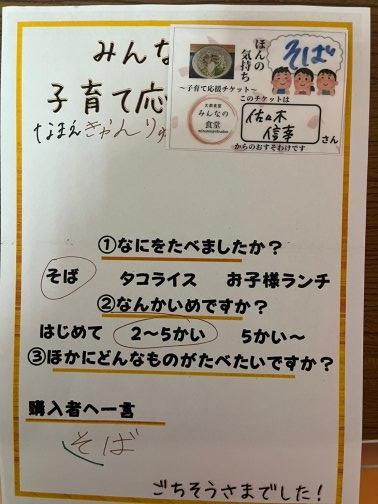 みんな
子育て応
なまえ きゃんりゅ
そば
ほんの
気持ち
～子育て応援チケット～
このチケットは
みんなの
食堂
佐々木
信幸
さん
からのおすそわけです
①なにをたべましたか？
そば タコライス お子様ランチ
②なんかいめですか？
はじめて 2～5かい 5かい～
③ほかにどんなものがたべたいですか？
購入者へ一言
そば
ごちそうさまでした！